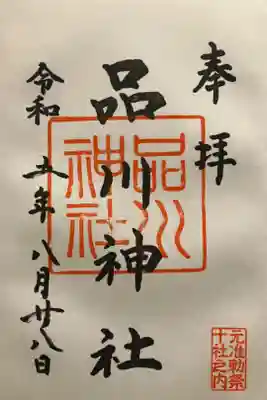 奉拝
品川神社
令和五年八月廿八日
品川
神社
元准勅祭
十社之内